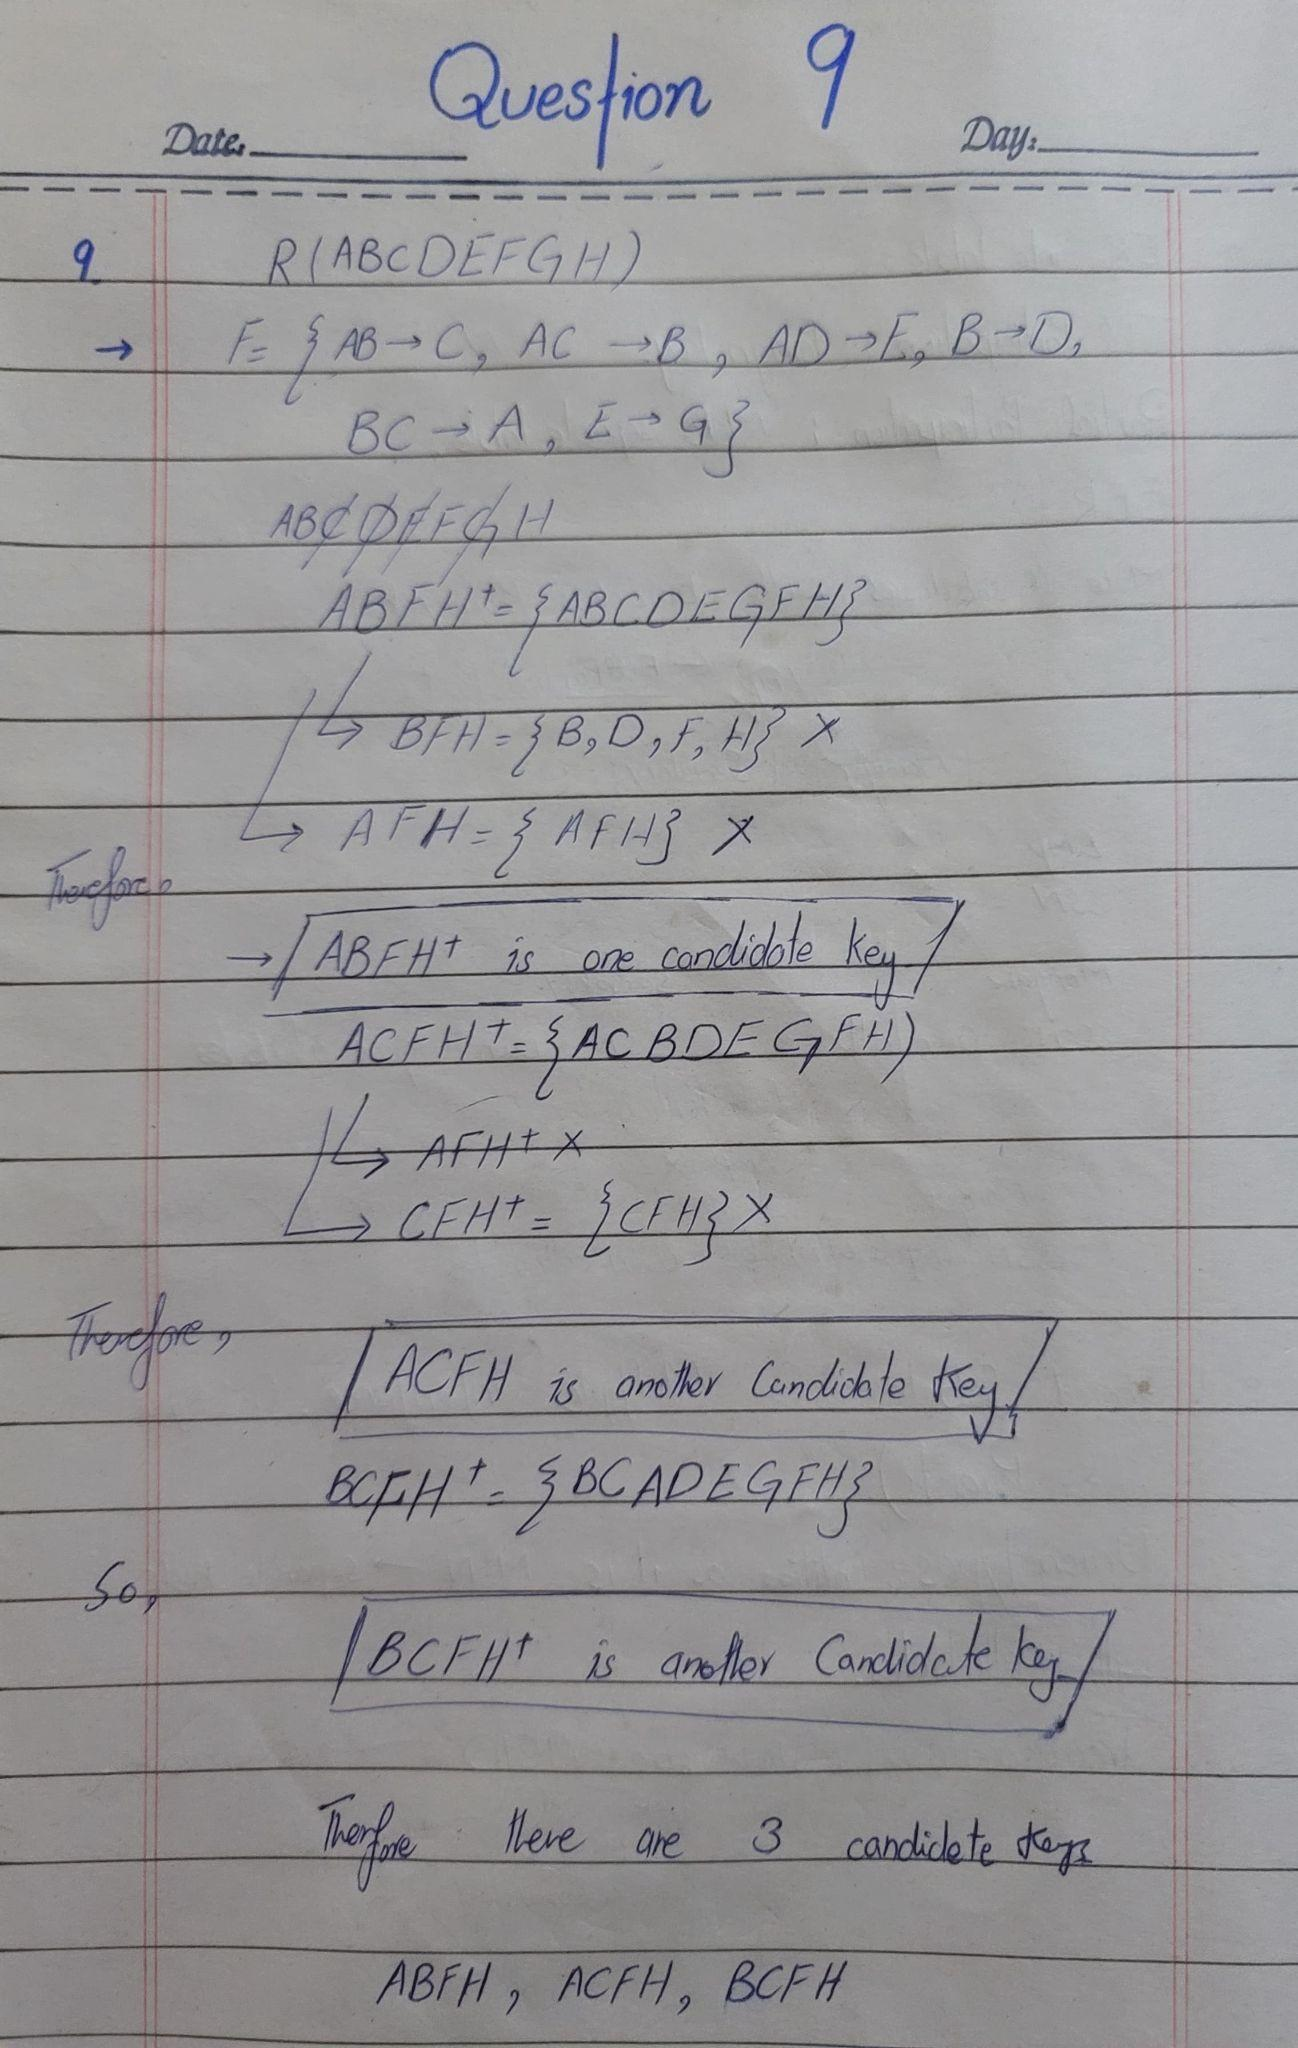 Question 9
Date: Day:
9 R(ABCDEFGH)
→ F= {AB→C, AC→B, AD→E, B→D,
BC→A, E→G}
ABCDEFGH
ABFH⁺={ABCDEGFH}
↳ BFH={B,D,F,H} X
↳ AFH={AFH} X
Therefore,
→ ABFH⁺ is one candidate key
ACFH⁺={ACBDEGFH)
↳ AFH⁺ X
↳ CFH⁺={CFH} X
Therefore,
ACFH is another Candidate Key
BCFH⁺={BCADEGFH}
So,
BCFH⁺ is another Candidate key
Therfore there are 3 candidate keys
ABFH, ACFH, BCFH